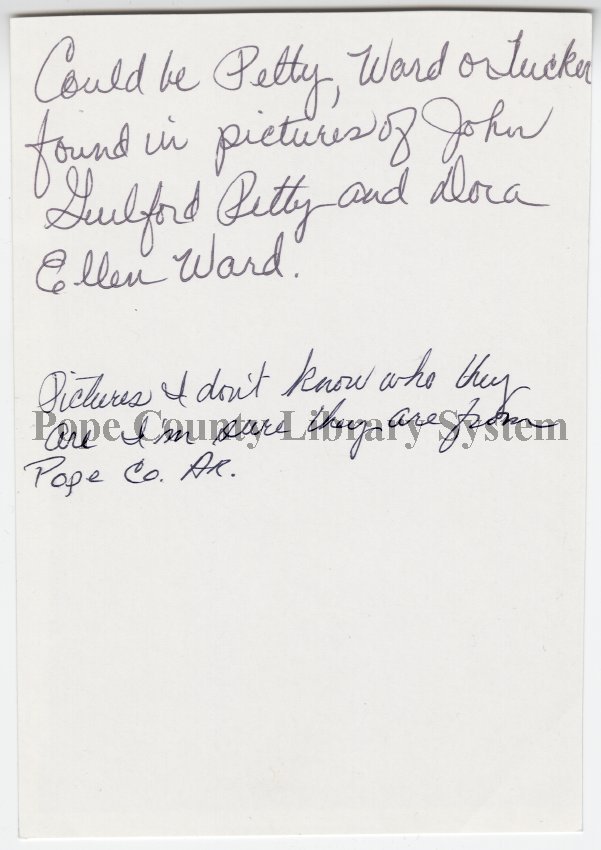 Could be Petty, Ward or Tucker
found in pictures of John
Guilford Petty and Dora
Ellen Ward.
Pictures I don't know who they
are I'm sure they are from
Pope County Library System
Pope Co. AR.